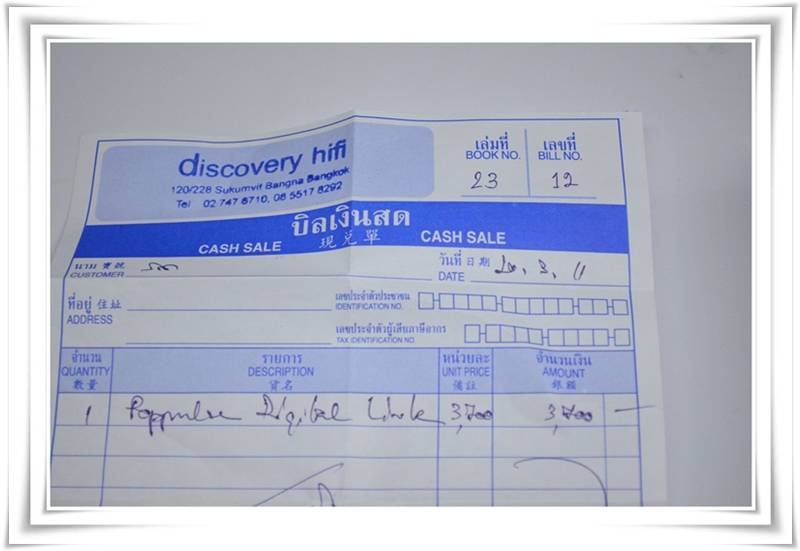 discovery hifi
120/228 Sukumvit Bangna Bangkok
Tel 02 747 6710, 08 5517 8292
เล่มที่ เลขที่
BOOK NO. BILL NO.
23 12
บิลเงินสด
CASH SALE 現兌單 CASH SALE
นาม寶號
CUSTOMER
วันที่日期
DATE 20.3.11
ที่อยู่住址
ADDRESS
เลขประจำตัวประชาชน
IDENTIFICATION NO.
เลขประจำตัวผู้เสียภาษีอากร
TAX IDENTIFICATION NO.
จำนวน รายการ หน่วยละ จำนวนเงิน
QUANTITY DESCRIPTION UNIT PRICE AMOUNT
數量 貨名 備註 銀額
1 Poppulse Digital Link 3,700 3,700 —